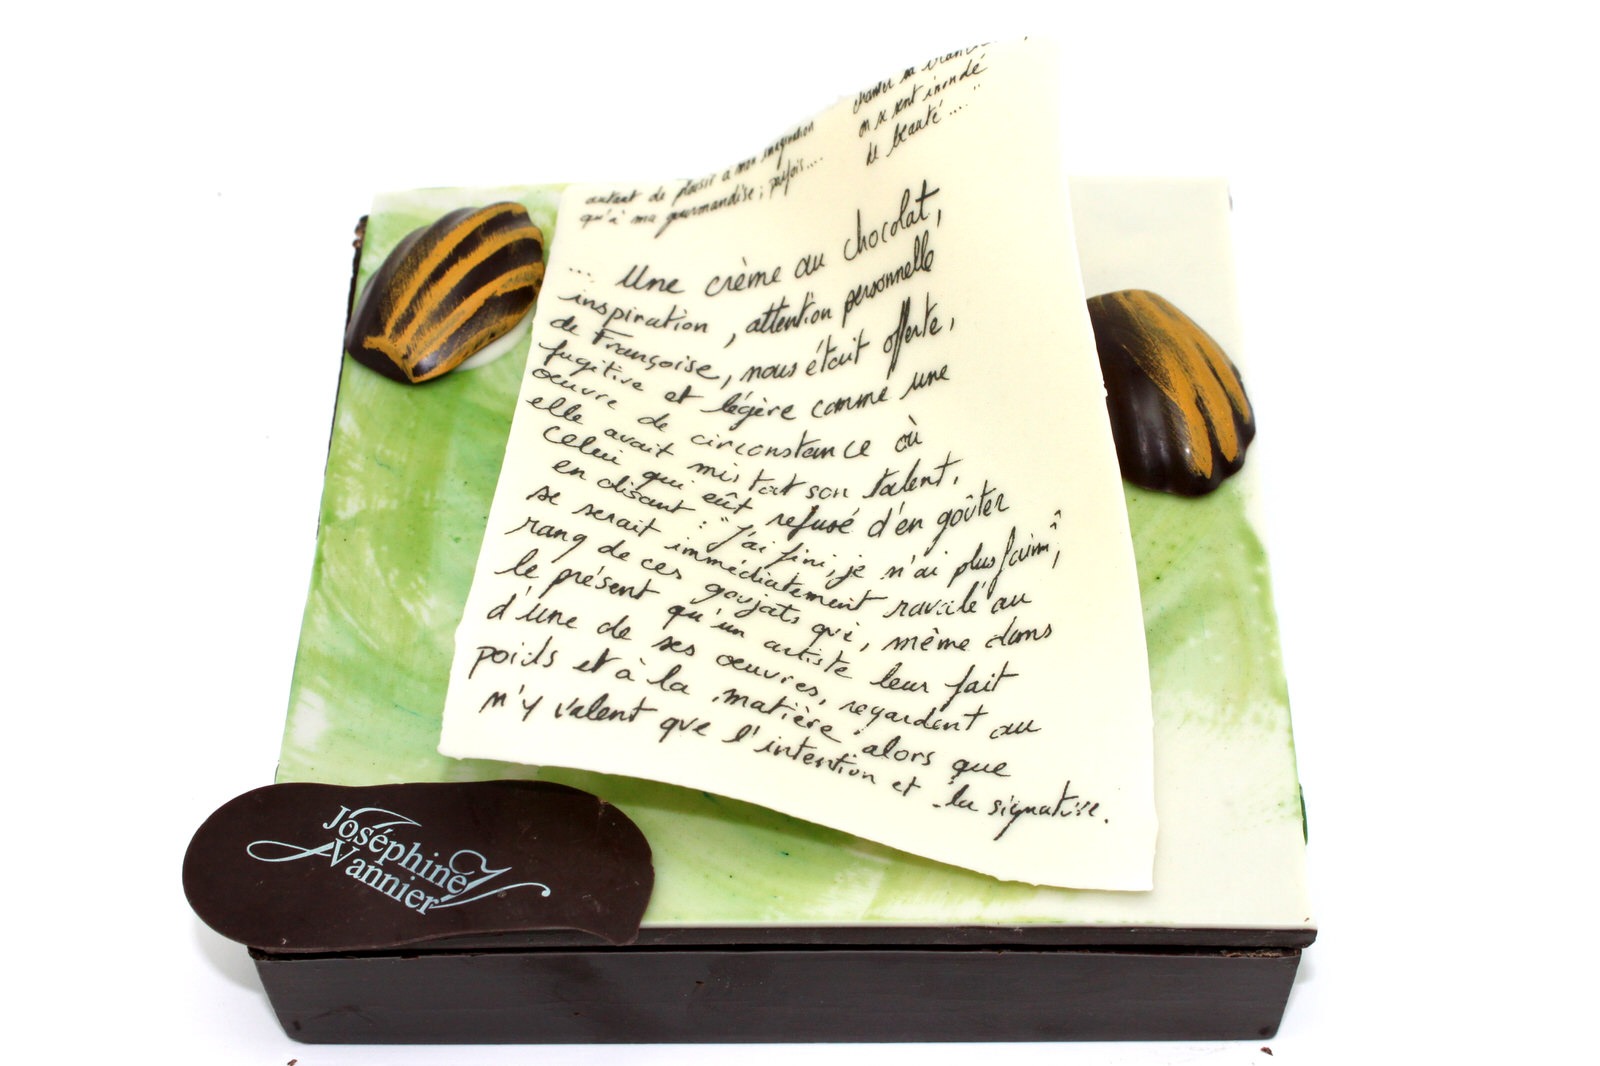 autant de plaisir à mon imagination
qu'à ma gourmandise; parfois....
on se sent inondé
de beauté .....
... Une crème au chocolat,
inspiration, attention personnelle
de Françoise, nous était offerte,
fugitive et légère comme une
œuvre de circonstance où
elle avait mis tout son talent.
Celui qui eût refusé d'en goûter
en disant : "j'ai fini, je n'ai plus faim",
se serait immédiatement ravalé au
rang de ces goujats qui, même dans
le présent qu'un artiste leur fait
d'une de ses œuvres, regardent au
poids et à la matière alors que
n'y valent que l'intention et la signature.
Joséphine
Vannier